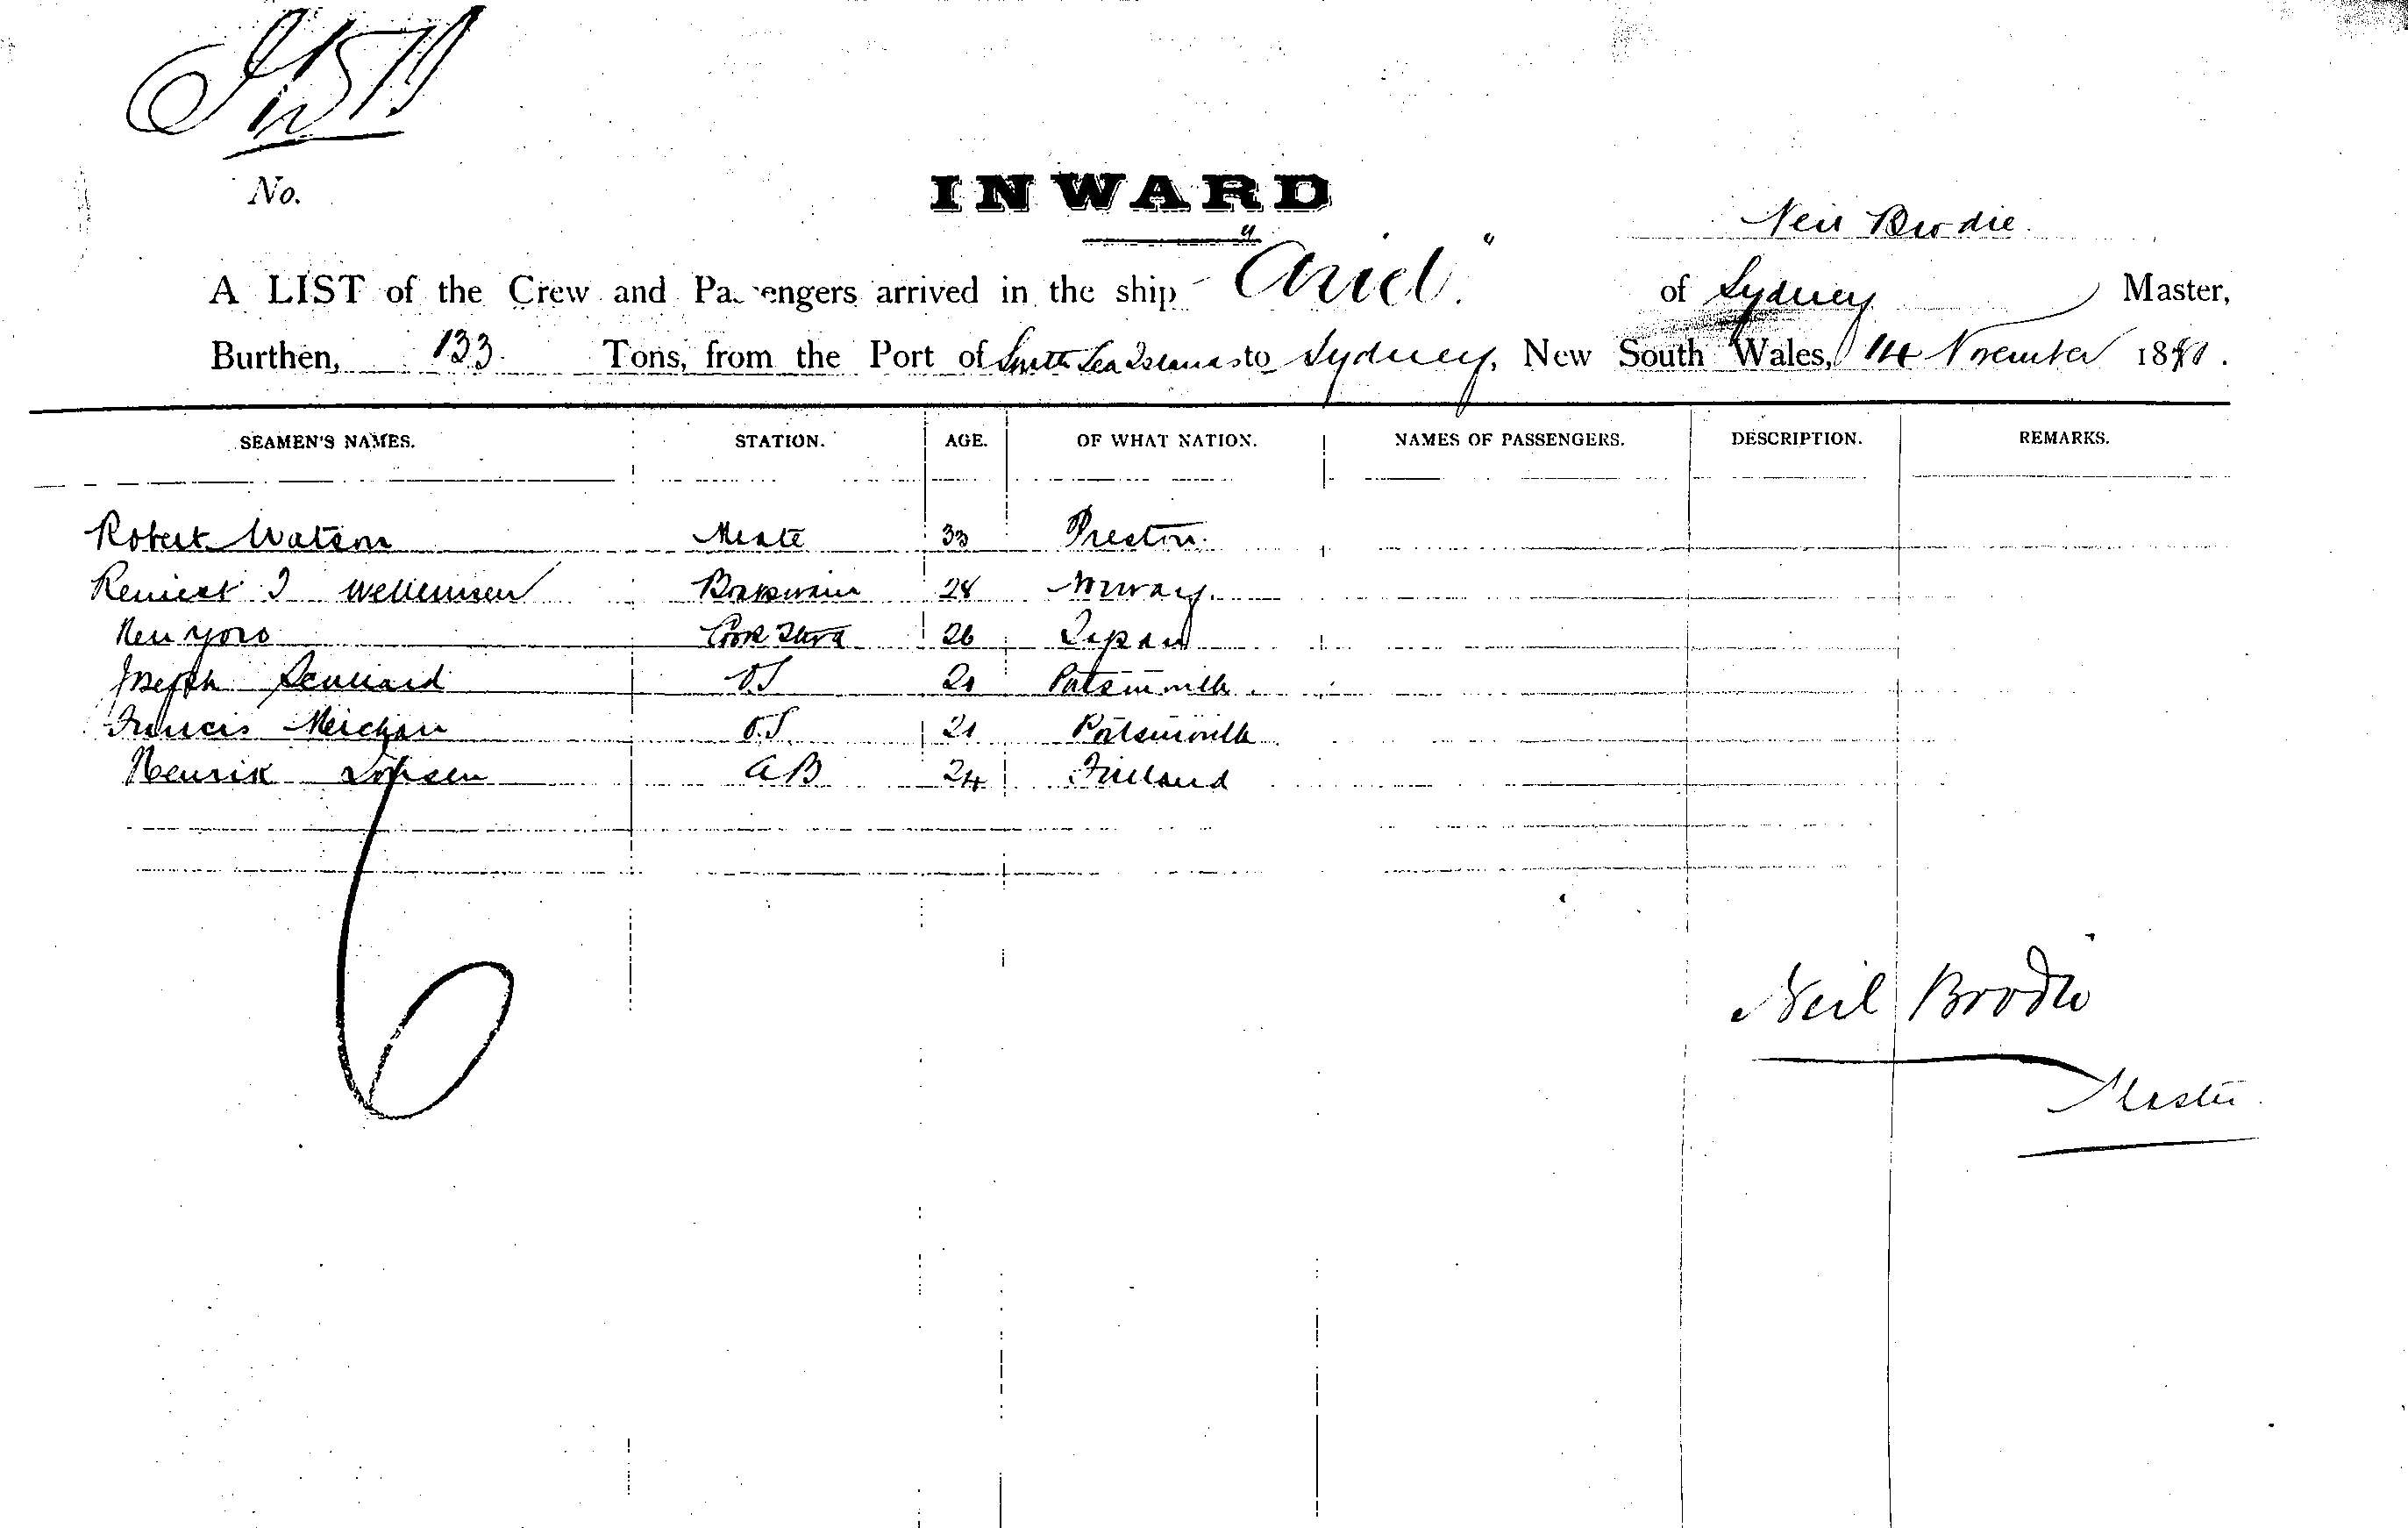 No.
INWARD
Neil Brodie
A LIST of the Crew and Passengers arrived in the ship "Ariel" of Sydney Master,
Burthen, 133 Tons, from the Port of South Sea Islands to Sydney, New South Wales, 14 November 1881.
SEAMEN'S NAMES. STATION. AGE. OF WHAT NATION. NAMES OF PASSENGERS. DESCRIPTION. REMARKS.
Robert Watson Mate 33 Preston.
J Boatswain 28 Norway.
Cook Stwd 26 Japan
Joseph OS 20 Portsmouth
Francis O.S 21 Portsmouth
Henrik AB 24 Finland
6
Neil Brodie
Master